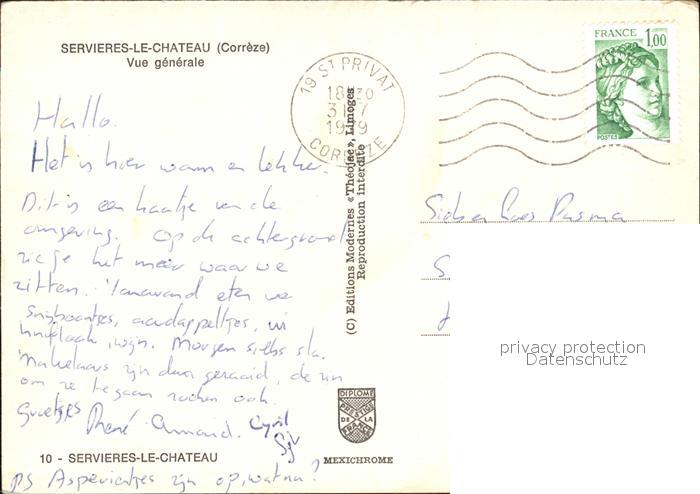 SERVIERES-LE-CHATEAU (Corrèze)
Vue générale
19 ST PRIVAT
18 30
3 7
1979
CORREZE
FRANCE
1,00
POSTES
Hallo.
Het is hier warm en lekker.
Dit is een kaartje van de
omgeving. Op de achtergrond
zie je het meer waar we
zitten. Vanavond eten we
Snijboontjes, aardappeltjes,
wijn. Morgen sla.
zijn daar, de
om te gaan ook.
Groetjes René Armand. Cyril
PS Asperientjes zijn op, wat nu?
(C) Editions Modernes «Théojac», Limoges
Reproduction interdite
DIPLOME
PRESTIGE
DE LA
FRANCE
10 - SERVIERES-LE-CHATEAU
MEXICHROME
privacy protection
Datenschutz